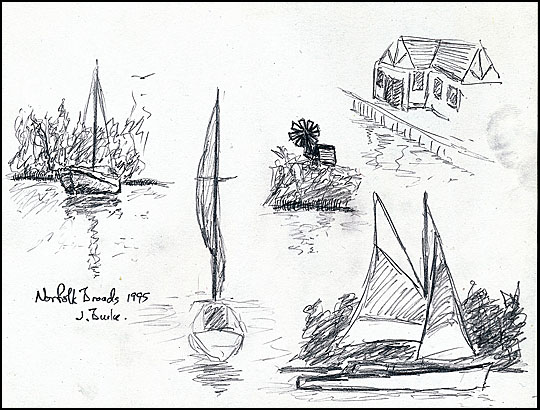 Norfolk Broads 1995
J. Burke.